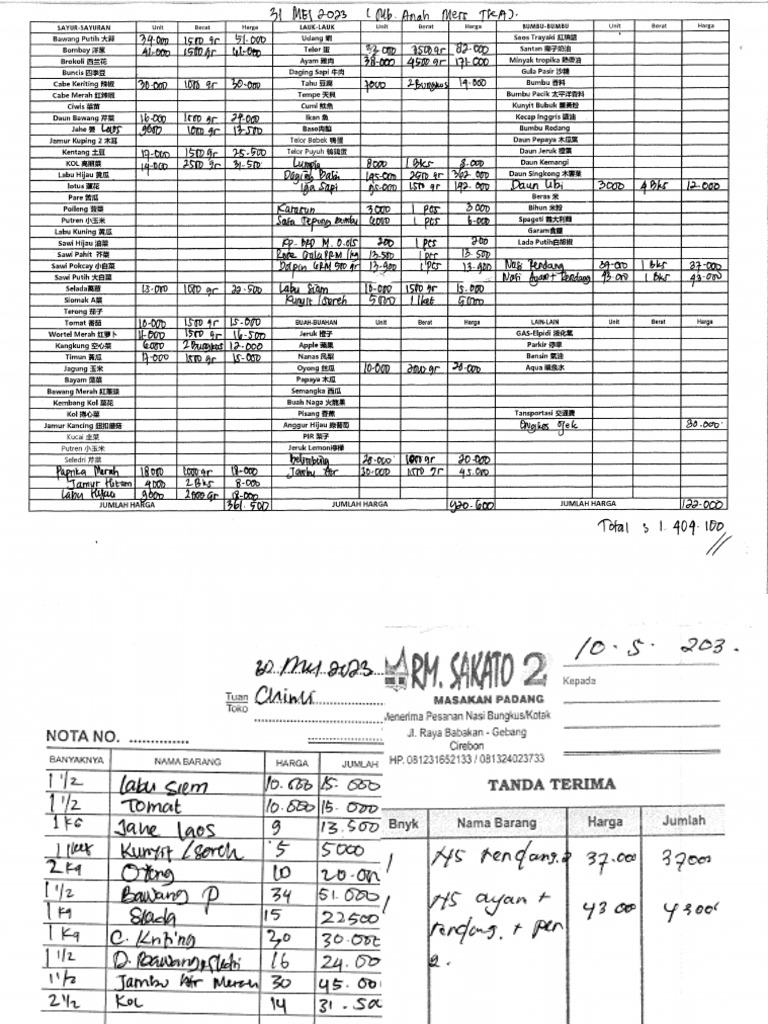 31 MEI 2023 (Mb. Anah Mess TKA).
SAYUR-SAYURAN Unit Berat Harga LAUK-LAUK Unit Berat Harga BUMBU-BUMBU Unit Berat Harga
Bawang Putih 大蒜 34.000 1500 gr 51.000 Udang 蝦 Saos Trayaki 紅燒醬
Bombay 洋葱 41.000 1500 gr 61.000 Telor 蛋 32.000 82.000 Santan 椰子奶油
Brokoli 西兰花 Ayam 雞肉 38.000 4500 gr 171.000 Minyak tropika 熱帶油
Buncis 四季豆 Daging Sapi 牛肉 Gula Pasir 沙糖
Cabe Keriting 辣椒 30.000 1000 gr 30.000 Tahu 豆腐 7000 2 Bungkus 14.000 Bumbu 香料
Cabe Merah 紅辣椒 Tempe 天貝 Bumbu Pacik 太平洋香料
Ciwis 菜苗 Cumi 魷魚 Kunyit Bubuk 薑黃粉
Daun Bawang 芹菜 16.000 24.000 Ikan 魚 Kecap Inggris 醬油
Jahe 姜 Laos 9000 13.500 Baso肉酸 Bumbu Redang
Jamur Kuping 2 木耳 Telor Bebek 鴨蛋 Daun Pepaya 木瓜葉
Kentang 土豆 17.000 1500 gr 25.500 Telor Puyuh 鵪鶉蛋 Daun Jeruk 橙葉
KOL 高丽菜 14.000 2500 gr 31.500 Lumpia 8000 1 Bks 8.000 Daun Kemangi
Labu Hijau 黄瓜 Daging Babi 145.000 2500 gr 362.000 Daun Singkong 木薯葉
lotus 蓮花 Iga Sapi 1500 gr 192.000 Daun Ubi 3000 4 Bks 12.000
Pare 苦瓜 Beras 米
Poileng 菠菜 3000 1 pcs 3000 Bihun 米粉
Putren 小玉米 Sasa Tepung Bumbu 6000 1 pcs 6.000 Spageti 義大利麵
Labu Kuning 黄瓜 Garam食鹽
Sawi Hijau 油菜 200 1 pcs 200 Lada Putih白胡椒
Sawi Pahit 芥菜 13.500 1 pcs 13.500
Sawi Pokcay 小白菜 13.900 1 pcs 13.900 Nasi Rendang 37.000 1 Bks 37.000
Sawi Putih 大白菜 Nasi Ayam + Rendang 43.000 1 Bks 43.000
Selada萵苣 15.000 1500 gr 22.500 Labu Siam 10.000 1500 gr 15.000
Siomak A菜 Kunyit / Sereh 5000 1 Iket 5000
Terong 茄子
Tomat 番茄 10.000 1500 gr 15.000 BUAH-BUAHAN Unit Berat Harga LAIN-LAIN Unit Berat Harga
Wortel Merah 红萝卜 11.000 1500 gr 16.500 Jeruk 橙子 GAS-Elpidi 液化氣
Kangkung 空心菜 6000 2 Bungkus 12.000 Apple 蘋果 Parkir 停車
Timun 黃瓜 1500 gr 15.000 Nanas 鳳梨 Bensin 氣油
Jagung 玉米 Oyong 絲瓜 10.000 2000 gr 20.000 Aqua 礦泉水
Bayam 菠菜 Papaya 木瓜
Bawang Merah 紅蔥頭 Semangka 西瓜
Kembang Kol 菜花 Buah Naga 火龍果
Kol 捲心菜 Pisang 香蕉 Transportasi 交通費
Jamur Kancing 鈕扣蘑菇 Anggur Hijau 綠葡萄 Ongkos ojek 30.000
Kucai 韭菜 PIR 梨子
Putren 小玉米 Jeruk Lemon檸檬
Seledri 芹菜 Belimbing 20.000 1000 gr 20.000
Paprika Merah 18000 1000 gr 18.000 Jambu Air 30.000 1500 gr 45.000
Jamur Hitam 4000 2 Bks 8.000
Labu Hijau 9000 2000 gr 18.000
JUMLAH HARGA 361.500 JUMLAH HARGA 920.600 JUMLAH HARGA 122.000
Total : 1.404.100
30 Mei 2023
Tuan
Toko
NOTA NO.
BANYAKNYA NAMA BARANG HARGA JUMLAH
1 1/2 Labu Siem 10.000 15.000
1 1/2 Tomat 10.000 15.000
1 KG Jahe Laos 9 13.500
1 Iket Kunyit / Sereh 5 5000
2 KG Oyong 10 20.000
1 1/2 Bawang P 34 51.000
1 Kg Slada 15 22500
1 Kg C. Kriting 30 30.000
1 1/2 D. Bawang + Sledri 16 24.00
1 1/2 Jambu Air Merah 30 45.00
2 1/2 Kol 14 31.500
RM. SAKATO 2
MASAKAN PADANG
Menerima Pesanan Nasi Bungkus/Kotak
Jl. Raya Babakan - Gebang
Cirebon
HP. 081231652133 / 081324023733
10.5.203.
Kepada
TANDA TERIMA
Bnyk Nama Barang Harga Jumlah
1 NS rendang. 37.00 3700
1 NS ayam + 43.00 4300
rendang. +
2.